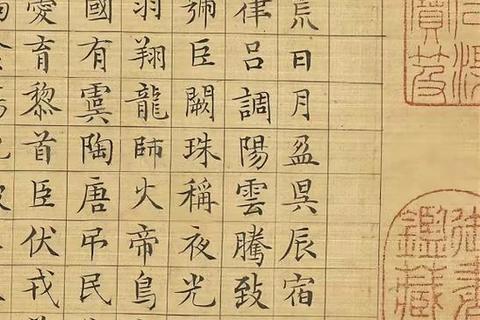 渠
寶笈
御書
鑑藏
荒日月盈昃辰宿
律呂調陽雲騰致
號巨闕珠稱夜光
羽翔龍師火帝鳥
國有虞陶唐吊民
愛育黎首臣伏戎